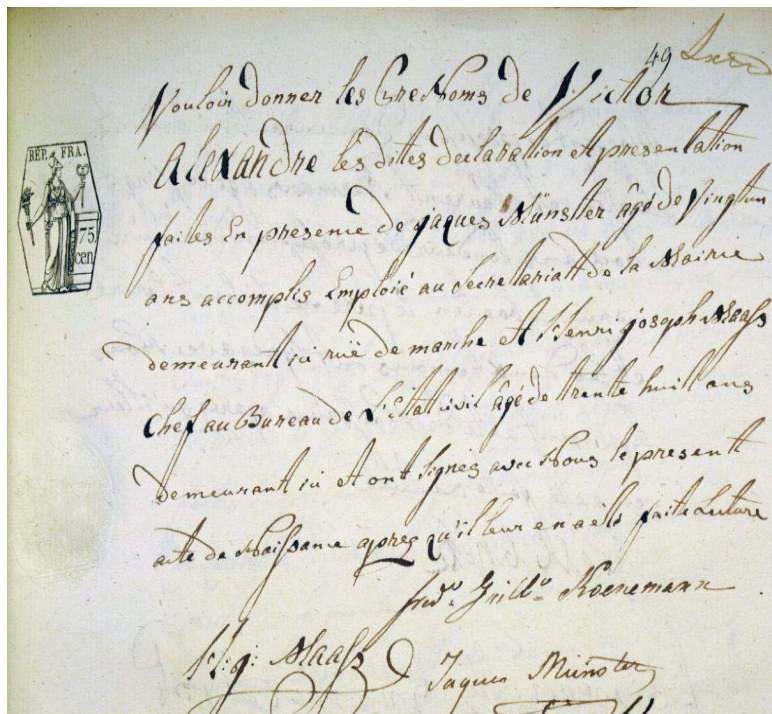 49
Vouloir donner les Prenoms de Victor
Alexandre les dites declaration et presentation
faites En presence de Jaques Münster âgé de Vingt un
ans accomplis Emploié au Secretariatt de la Mairie
demeurant ici ruë de marche et Henri joseph Maass
Chef au Bureau de L'Etat civil âgé de trente huit ans
demeurant ici et ont Signés avec Nous le present
acte de Naissance apres qu'il leur en a eté faite Lecture
REP. FRA.
75
cen
Koenemann
H: j: Maass
Jaques Münster